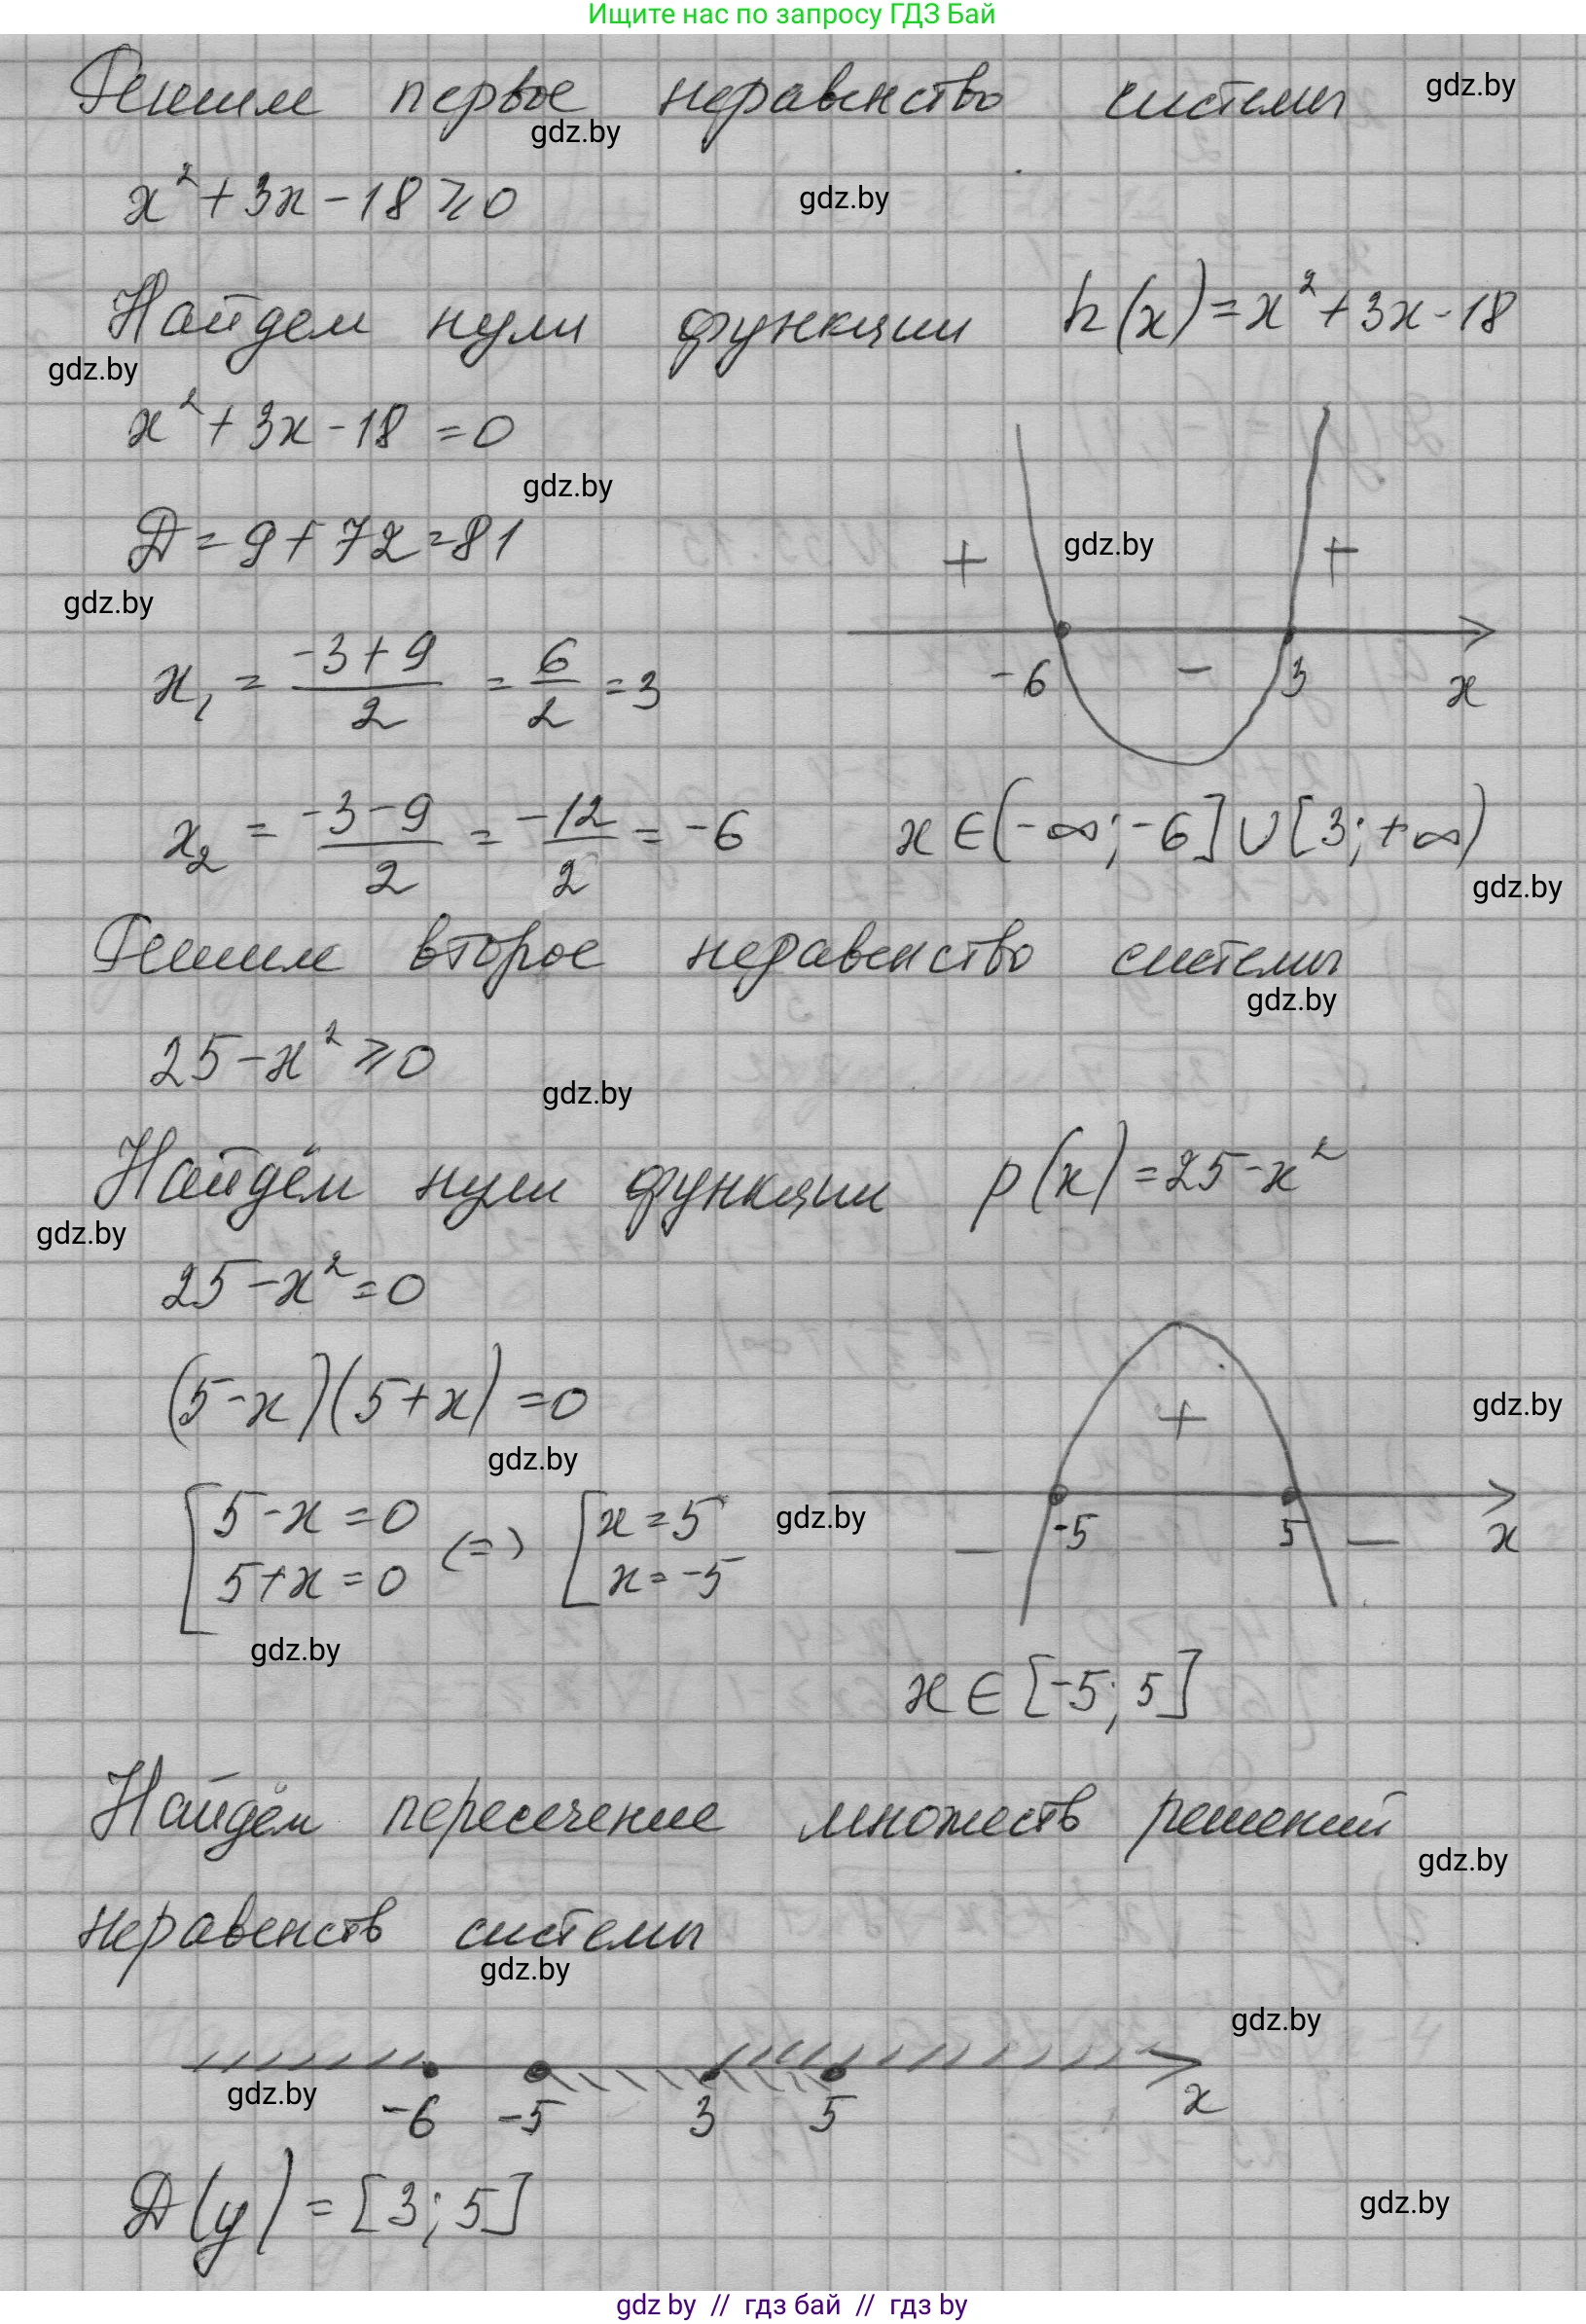 Ищите нас по запросу ГДЗ Бай
Решим первое неравенство системы gdz.by
gdz.by
x² + 3x - 18 ⩾ 0 gdz.by
Найдем нули функции h(x) = x² + 3x - 18
gdz.by
x² + 3x - 18 = 0
gdz.by
D = 9 + 72 = 81
+ gdz.by +
gdz.by
x₁ = (-3+9)/2 = 6/2 = 3
-6 - 3 x
x₂ = (-3-9)/2 = -12/2 = -6 x ∈ (-∞; -6] ∪ [3; +∞)
gdz.by
Решим второе неравенство системы
gdz.by
25 - x² ⩾ 0
gdz.by
Найдём нули функции p(x) = 25 - x²
gdz.by
25 - x² = 0
(5-x)(5+x) = 0 gdz.by
+
gdz.by
[5-x=0 (=) [x=5 gdz.by
5+x=0 x=-5
- -5 5 - x
gdz.by
x ∈ [-5; 5]
Найдём пересечение множеств решений
gdz.by
неравенств системы
gdz.by
gdz.by
gdz.by
-6 -5 3 5 x
D(y) = [3; 5]
gdz.by
gdz by // гдз бай // гдз by